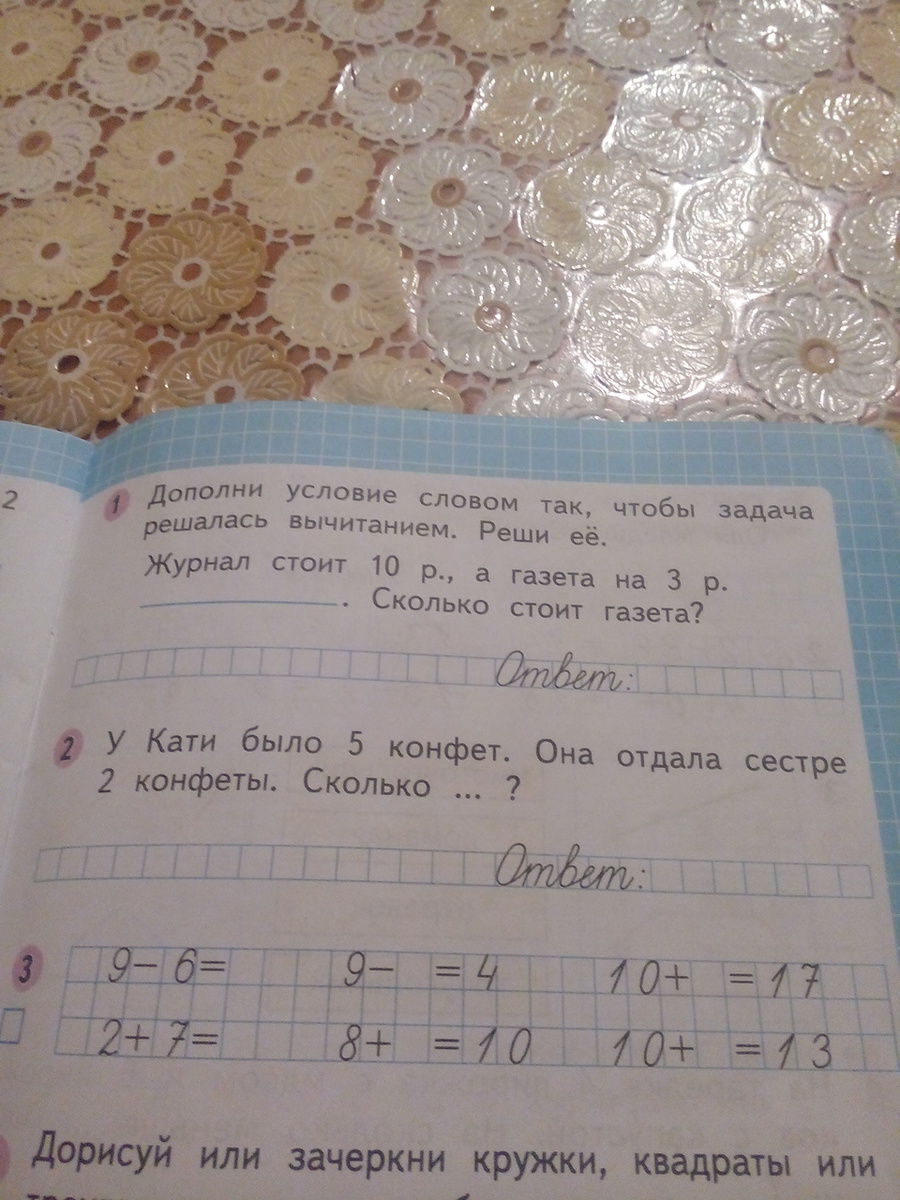 2
1 Дополни условие словом так, чтобы задача
решалась вычитанием. Реши её.
Журнал стоит 10 р., а газета на 3 р.
____________. Сколько стоит газета?
Ответ:
2 У Кати было 5 конфет. Она отдала сестре
2 конфеты. Сколько ... ?
Ответ:
3 9-6= 9- =4 10+ =17
2+7= 8+ =10 10+ =13
Дорисуй или зачеркни кружки, квадраты или